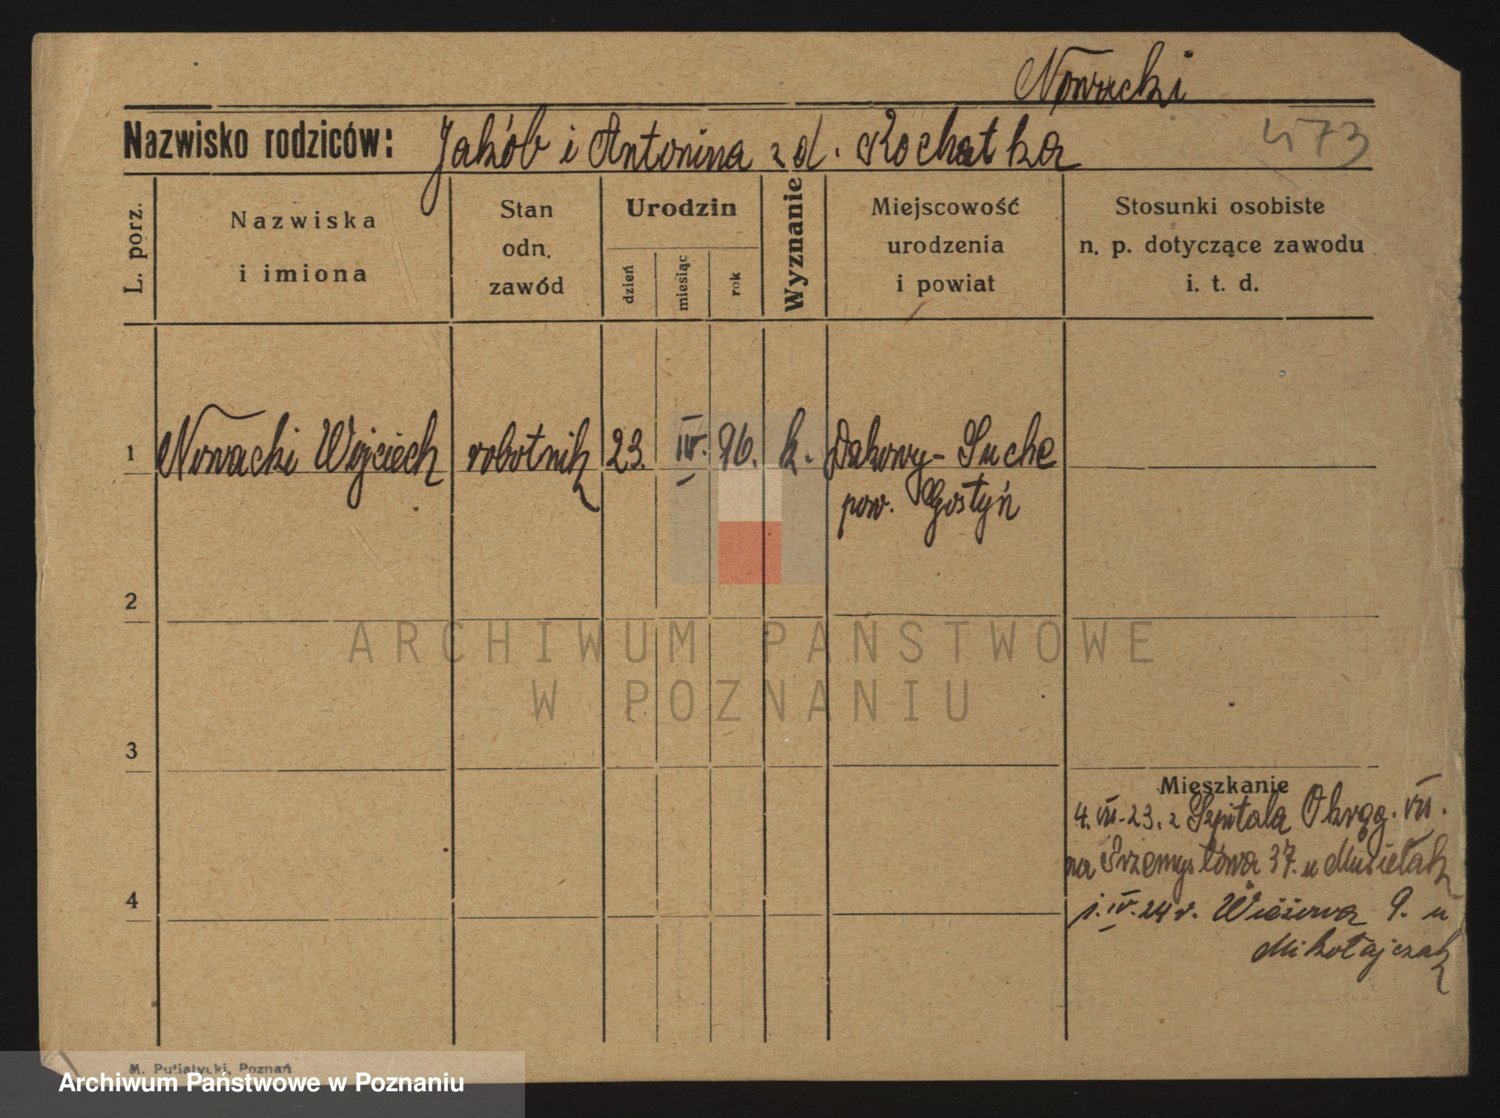 Nowacki
Nazwisko rodziców: Jakób i Antonina z d. Kochatka
473
L. porz.
Nazwiska
i imiona
Stan
odn.
zawód
Urodzin
dzień
miesiąc
rok
Wyznanie
Miejscowość
urodzenia
i powiat
Stosunki osobiste
n. p. dotyczące zawodu
i. t. d.
1 Nowacki Wojciech robotnik 23. IV. 96. k. Dakowy-Suche
pow. Gostyń
2
ARCHIWUM PAŃSTWOWE
W POZNANIU
3
Mieszkanie
4. VII. 23. z Szpitala Okręg. VII.
na Przemysłowa 37. u Musielak
4
IV. 24 r. Wieżowa 9. u
Mikołajczak
M. Putiatycki, Poznań
Archiwum Państwowe w Poznaniu